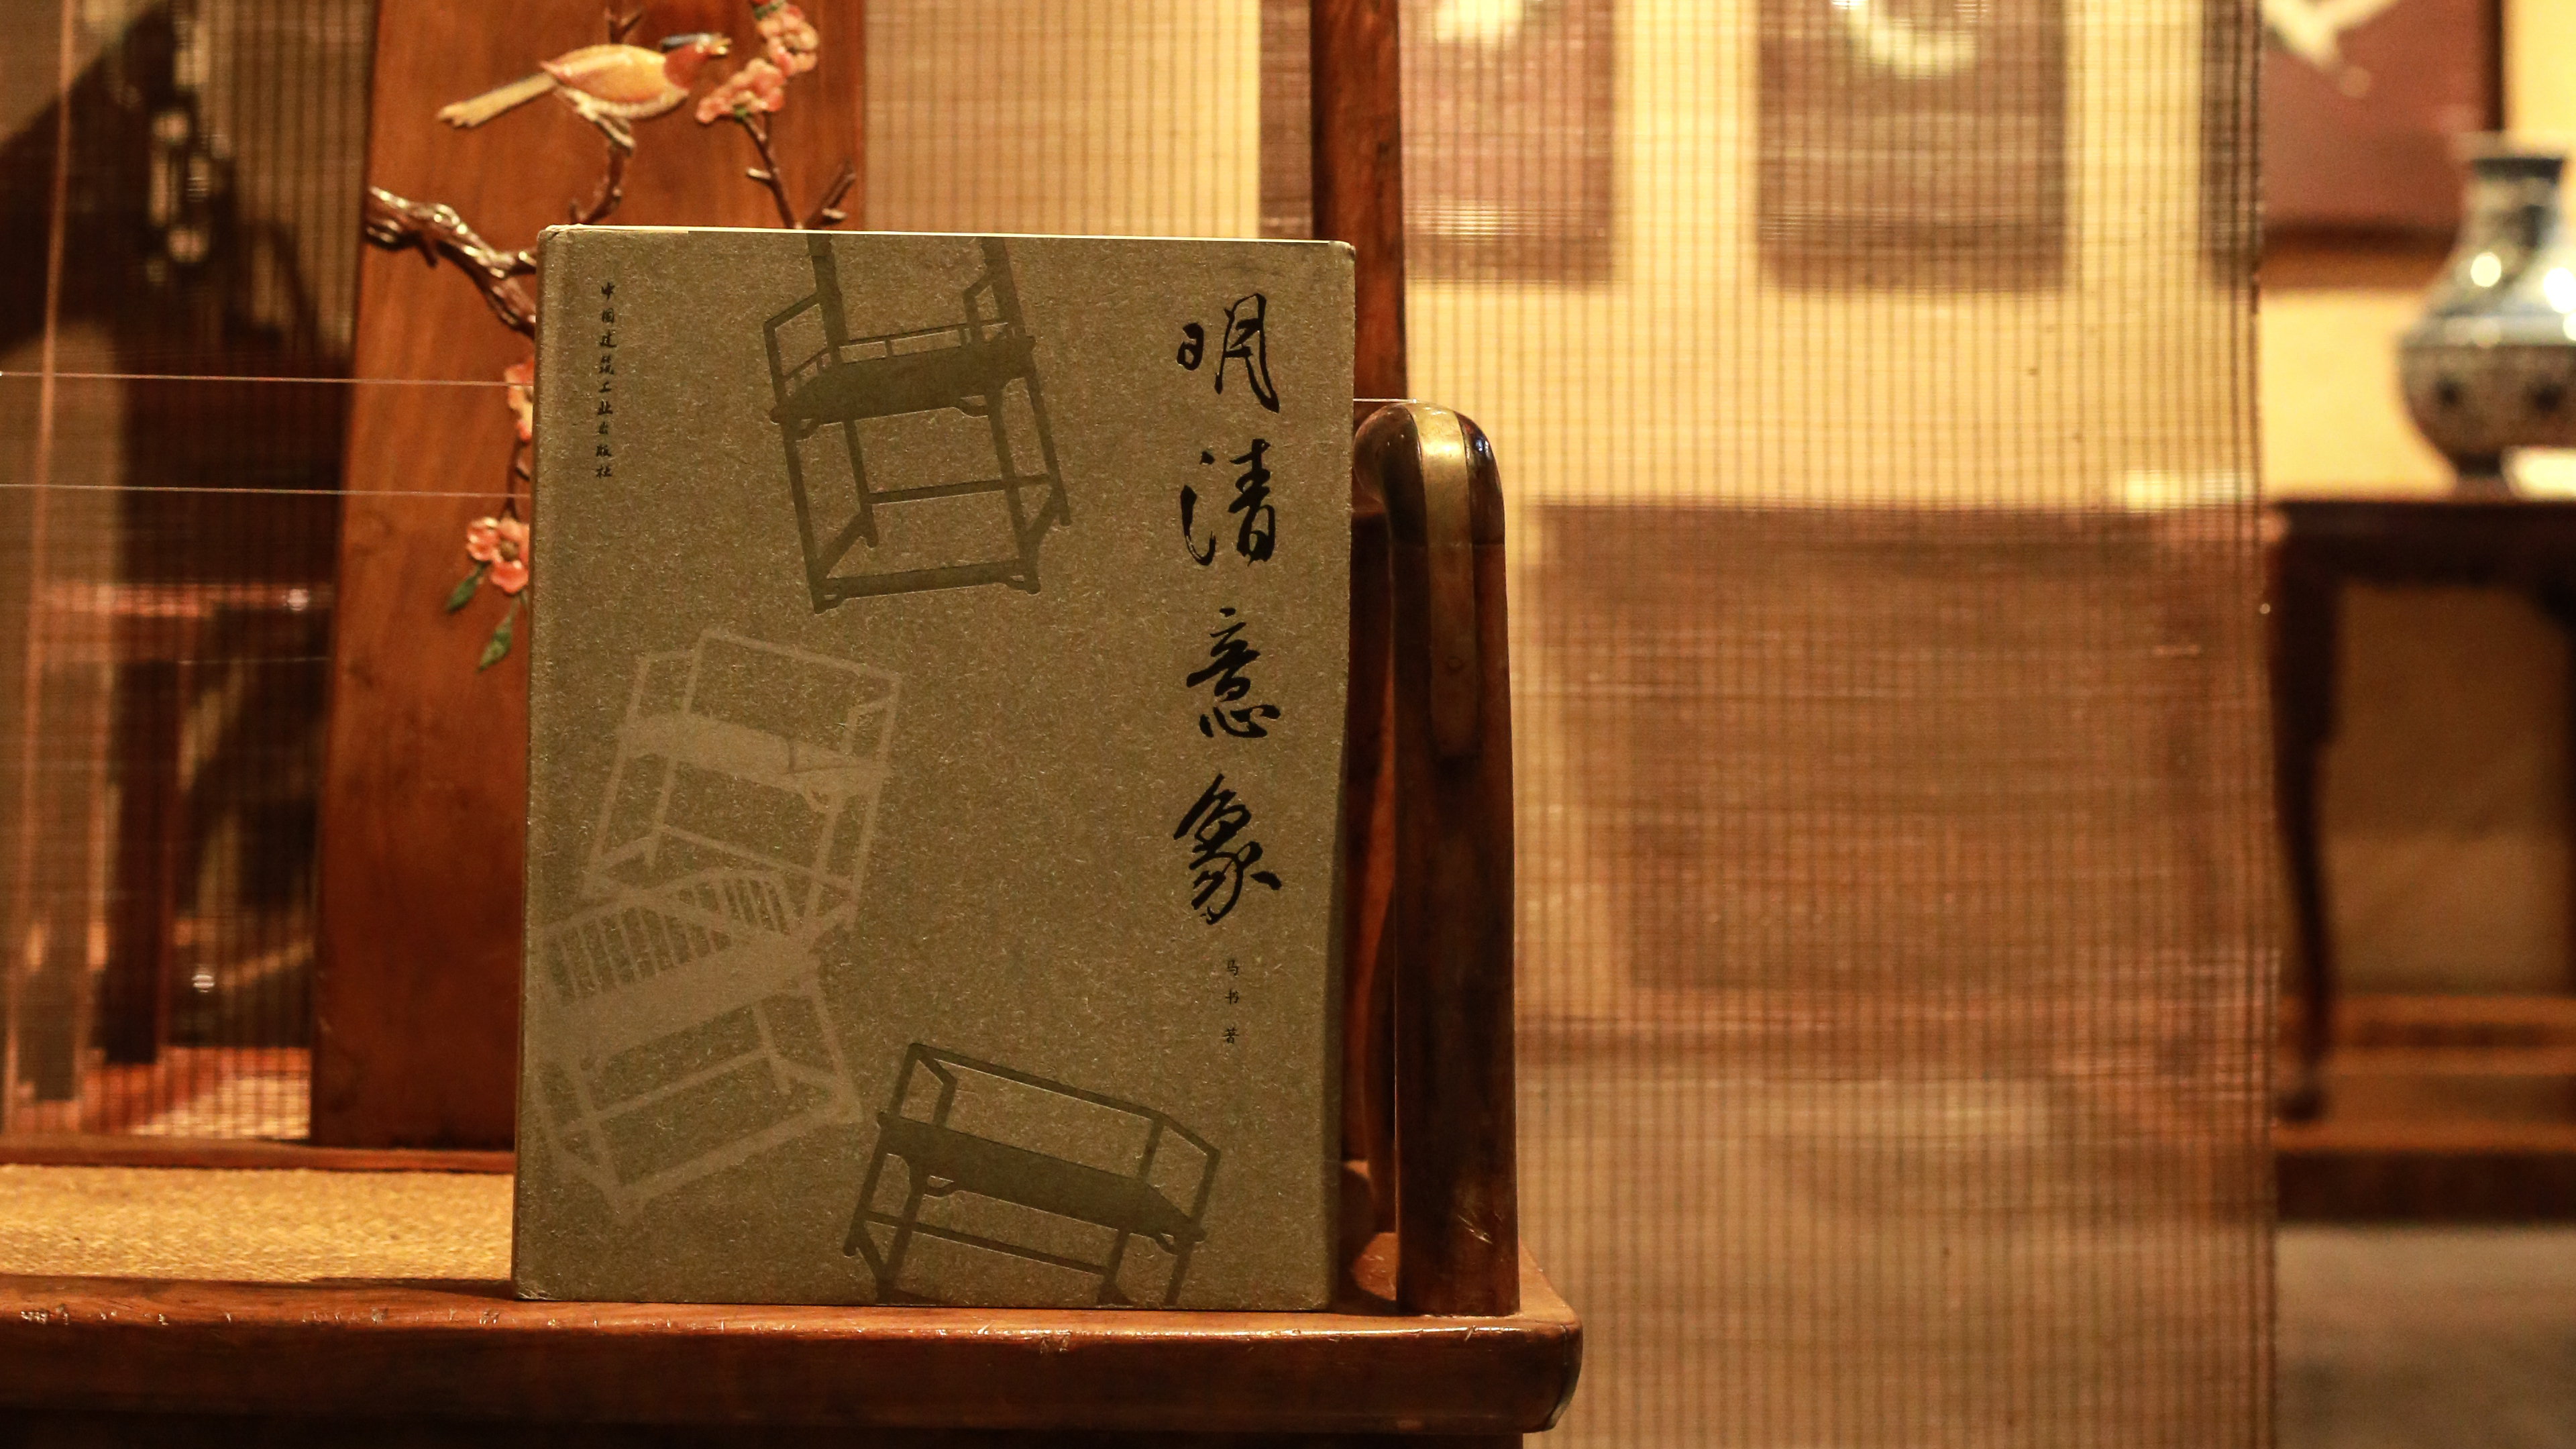 明清意象
马书 著
中国建筑工业出版社